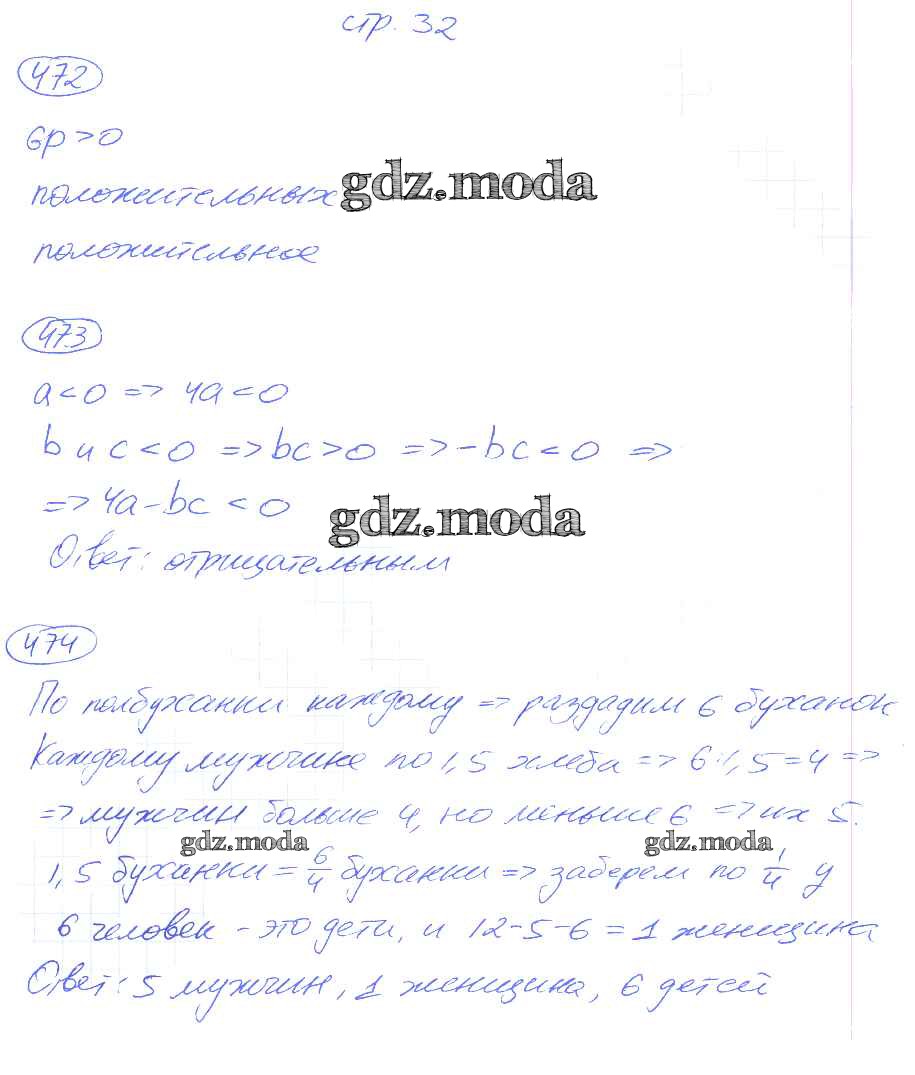 стр. 32
472
6p>0
положительных
gdz.moda
положительное
473
a<0 => 4a<0
b и c<0 => bc>0 => -bc<0 =>
=> 4a-bc <0
gdz.moda
Ответ: отрицательным
474
По полбуханки каждому => раздадим 6 буханок
Каждому мужчине по 1,5 хлеба => 6:1,5=4 =>
=> мужчин больше 4, но меньше 6 => их 5.
gdz.moda gdz.moda
1,5 буханки = 6/4 буханки => заберем по 1/4 у
6 человек - это дети, и 12-5-6=1 женщина
Ответ: 5 мужчин, 1 женщина, 6 детей